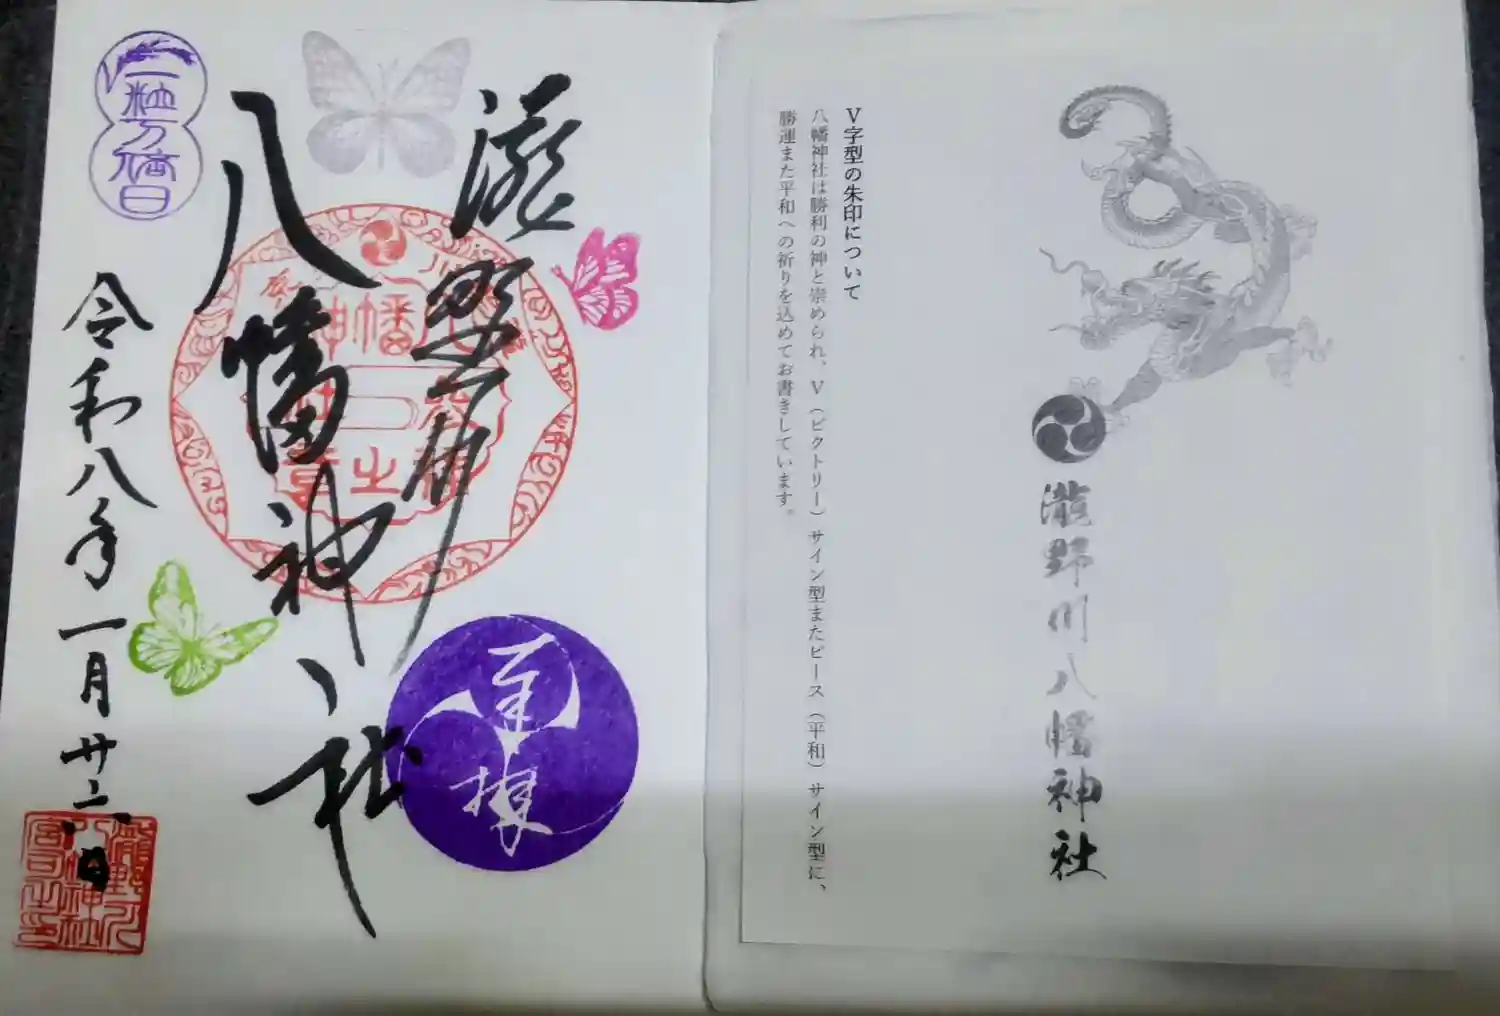 V字型の朱印について
八幡神社は勝利の神と崇められ、V（ビクトリー）サイン型またピース（平和）サイン型に、
勝運また平和への祈りを込めてお書きしています。
瀧野川八幡神社
瀧野川
八幡神社
令和八年一月廿二日
一粒万倍日
奉拝